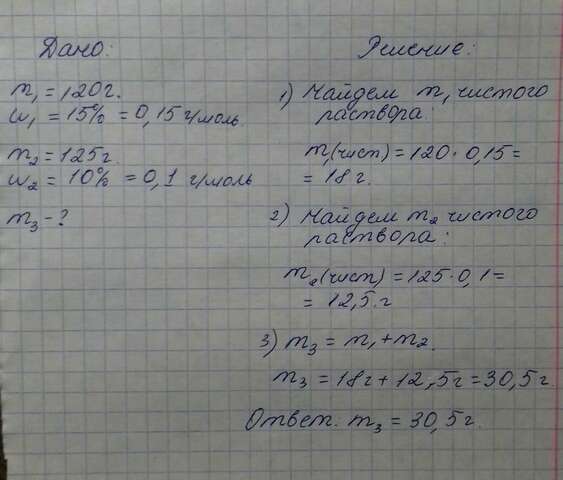 Дано:
m₁ = 120г.
ω₁ = 15% = 0,15 г/моль.
m₂ = 125г.
ω₂ = 10% = 0,1 г/моль
m₃ - ?
Решение:
1) Найдем m₁ чистого
раствора:
m(чист) = 120 · 0,15 =
= 18 г.
2) Найдем m₂ чистого
раствора:
m₂(чист) = 125 · 0,1 =
= 12,5. г
3) m₃ = m₁ + m₂.
m₃ = 18г + 12,5г = 30,5г.
Ответ: m₃ = 30,5г.